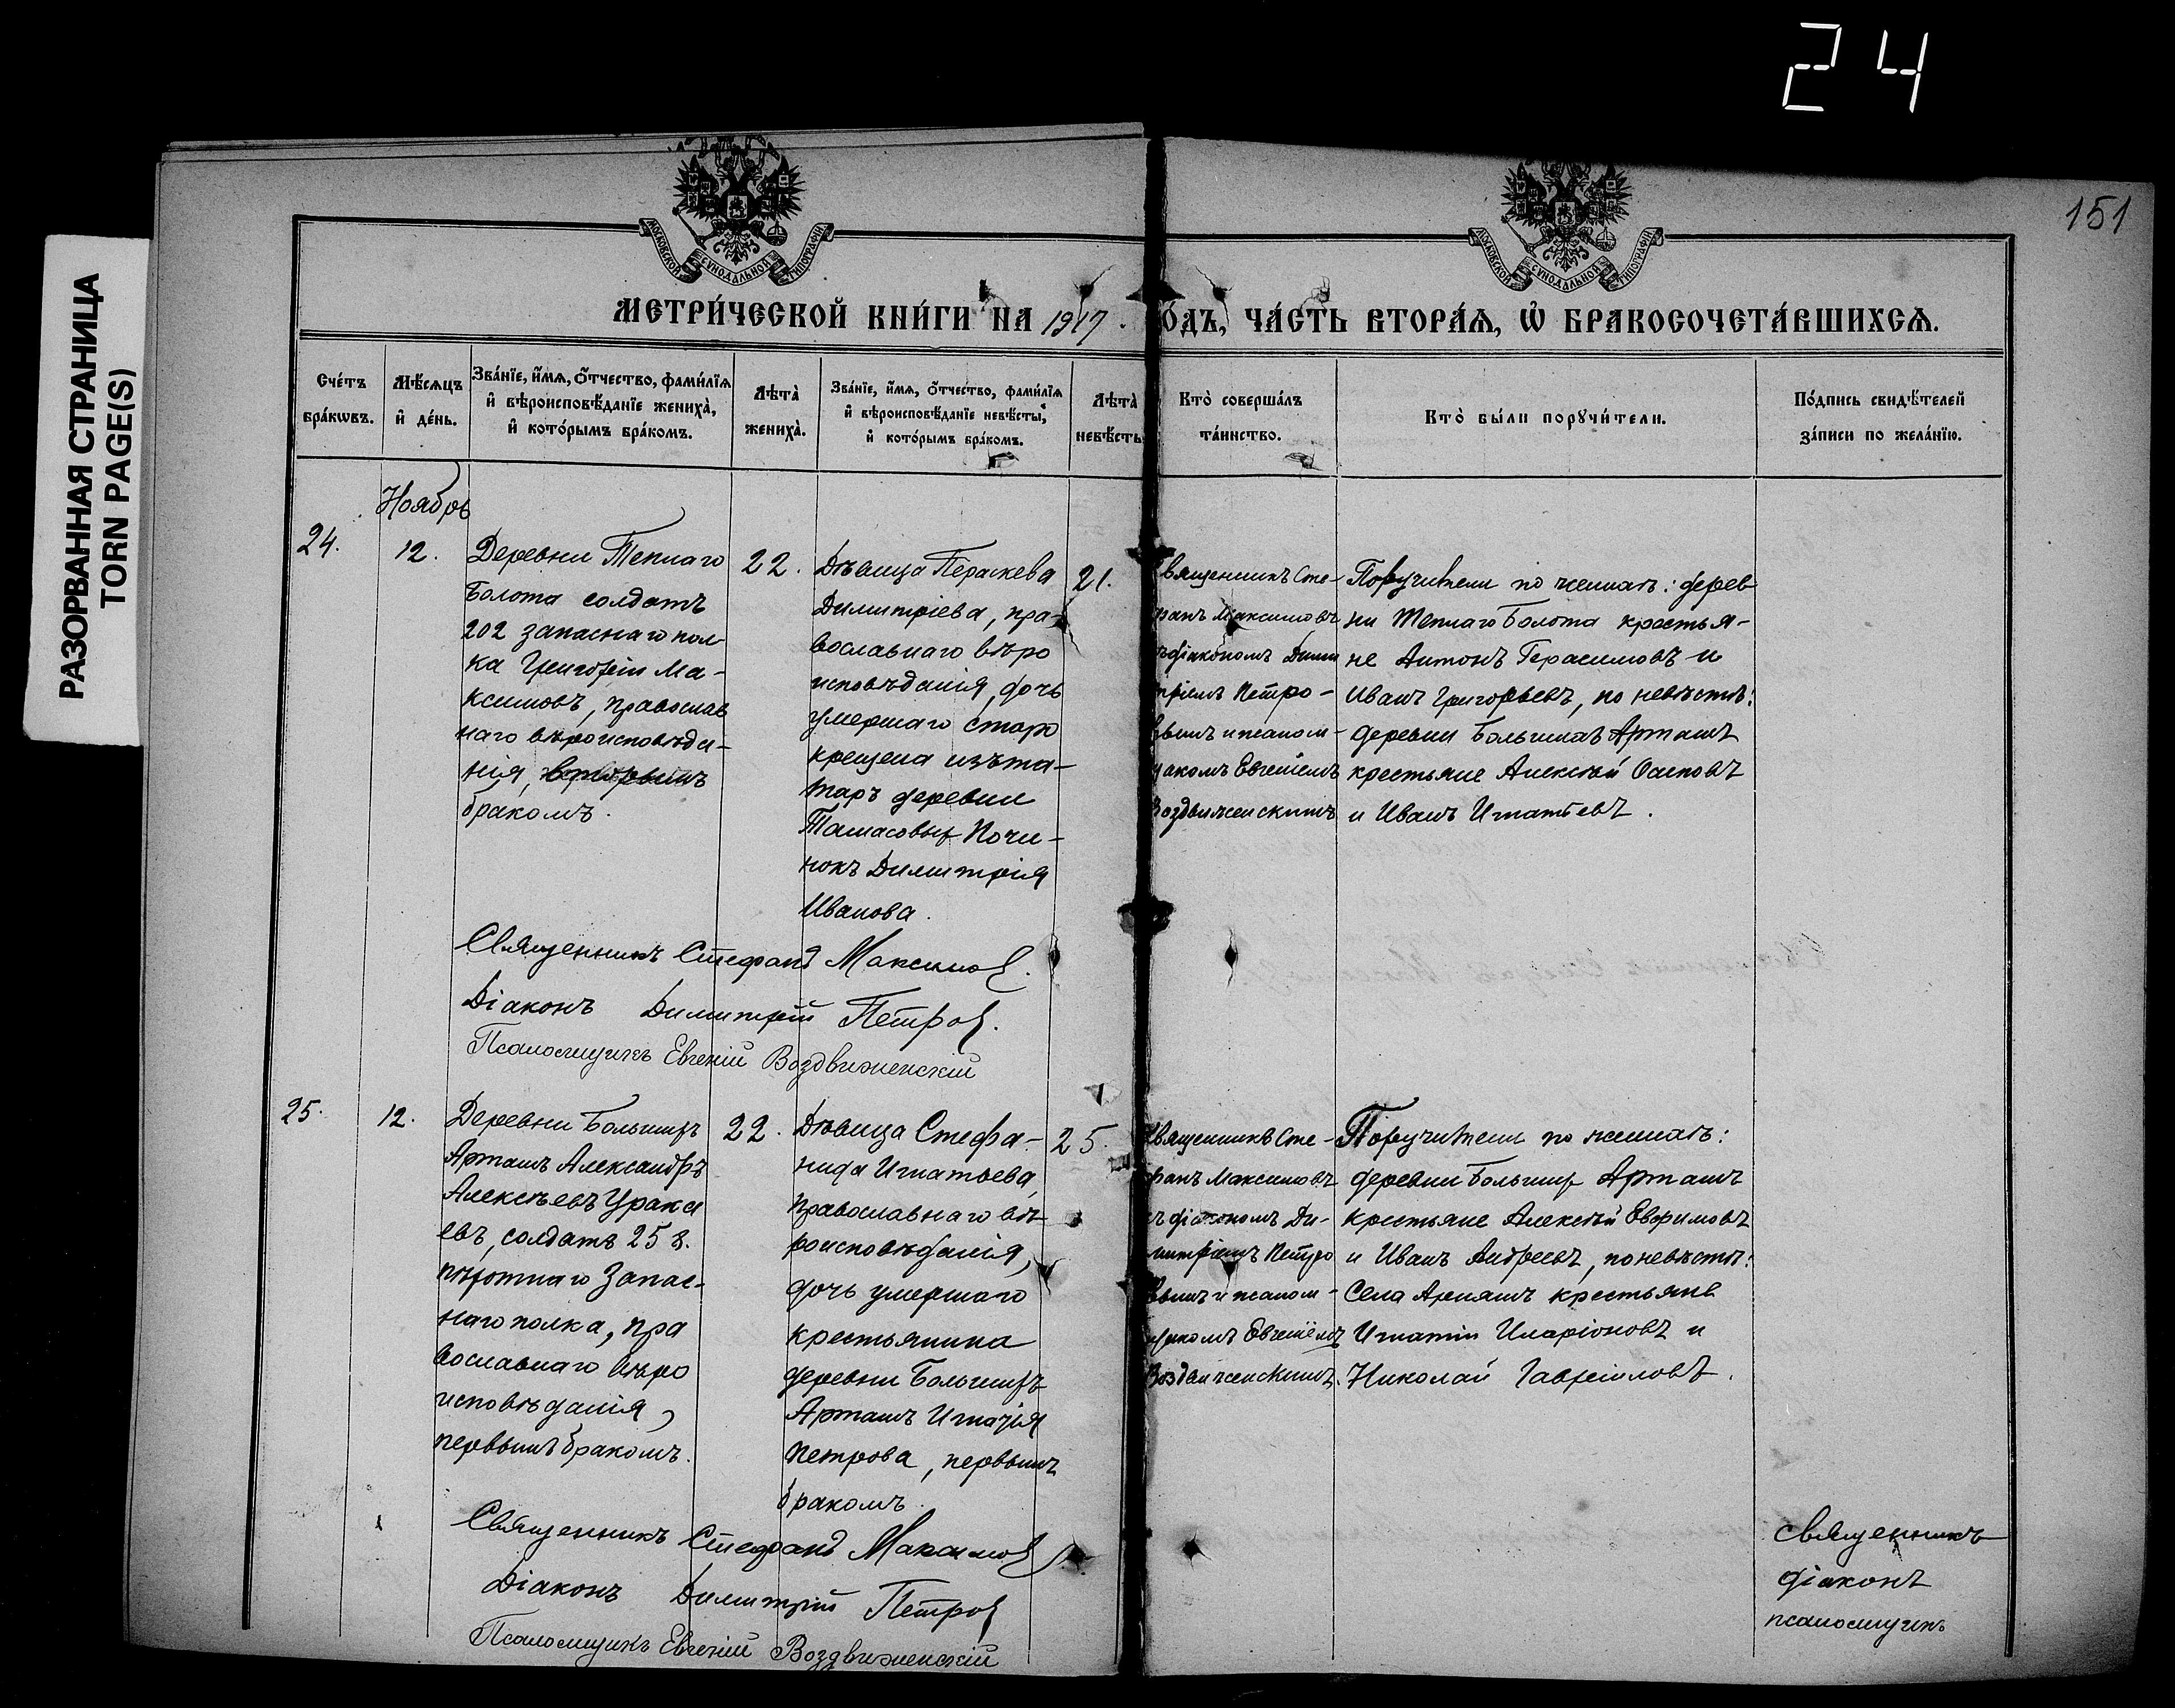 24
151
РАЗОРВАННАЯ СТРАНИЦА
TORN PAGE(S)
МОСКОВСКОЙ СѴНОДАЛЬНОЙ ТИПОГРАФІИ
МОСКОВСКОЙ СѴНОДАЛЬНОЙ ТИПОГРАФІИ
МЕТРИ́ЧЕСКОЙ КНИ́ГИ НА 1917 О́ДЪ, ЧА́СТЬ ВТОРА́Я, Ѽ БРАКОСОЧЕТА́ВШИХСЯ.
Сче́тъ
бра́кѡвъ.
Мѣ́сяцъ
и҆ де́нь.
Зва́нїе, и҆́мя, ѻ҆́тчество, фами́лїя
и҆ вѣроисповѣ́данїе жениха̀,
и҆ кото́рымъ бра́комъ.
Лѣта̀
жениха̀.
Зва́нїе, и҆́мя, ѻ҆́тчество, фами́лїя
и҆ вѣроисповѣ́данїе невѣ́сты,
и҆ кото́рымъ бра́комъ.
Лѣта̀
невѣ́сты
Кто̀ соверша́лъ
та́инство.
Кто̀ бы́ли порꙋчи́тели.
По́дпись свидѣ́телей
за́писи по жела́нїю.
Ноябрь
24.
12.
Деревни Теплаго
Болота солдатъ
202 запаснаго пол-
ка Григорій Ма-
ксимовъ, православ
наго вѣроисповѣда-
нія, вторымъ
бракомъ.
22.
Дѣвица Параскева
Димитріева, пра-
вославнаго вѣро
исповѣданія, дочь
умершаго старо
крещена изъ та-
таръ деревни
Почи-
нокъ Димитрія
Иванова.
21.
Священникъ Сте-
фанъ Максимовъ
съ діакономъ Дими
тріемъ Петро-
вымъ и псалом-
щикомъ Евгеніемъ
Воздвиженскимъ
Поручители по женихѣ: дерев
ни Теплаго Болота крестья-
не Антонъ Герасимовъ и
Иванъ Григорьевъ, по невѣстѣ:
деревни Большихъ Арташъ
крестьяне Алексѣй Осиповъ
и Иванъ Игнатьевъ.
Священникъ Стефанъ Максимов.
Діаконъ Димитрій Петров.
Псаломщикъ Евгеній Воздвиженскій
25.
12.
Деревни Большихъ
Арташъ Александръ
Алексѣевъ Урака
евъ, солдатъ 25 в.
пѣхотнаго Запас-
наго полка, пра
вославнаго вѣро
исповѣданія,
первымъ бракомъ.
22.
Дѣвица Стефа-
нида Игнатьева,
православнаго вѣ-
роисповѣданія,
дочь умершаго
крестьянина
деревни Большихъ
Арташъ Игнатія
Петрова, первымъ
бракомъ.
25.
Священникъ Сте-
фанъ Максимовъ
съ діакономъ Ди-
митріемъ Петро
вымъ и псалом-
щикомъ Евгеніемъ
Воздвиженскимъ.
Поручители по женихѣ:
деревни Большихъ Арташъ
крестьяне Алексѣй Евфимовъ
и Иванъ Андреевъ, по невѣстѣ:
Села Арняшъ крестьяне
Игнатій Иларіоновъ и
Николай Гавріиловъ.
Священникъ Стефанъ Максимов
Діаконъ Димитрій Петров
Псаломщикъ Евгеній Воздвиженскій
священникъ
діаконъ
псаломщикъ